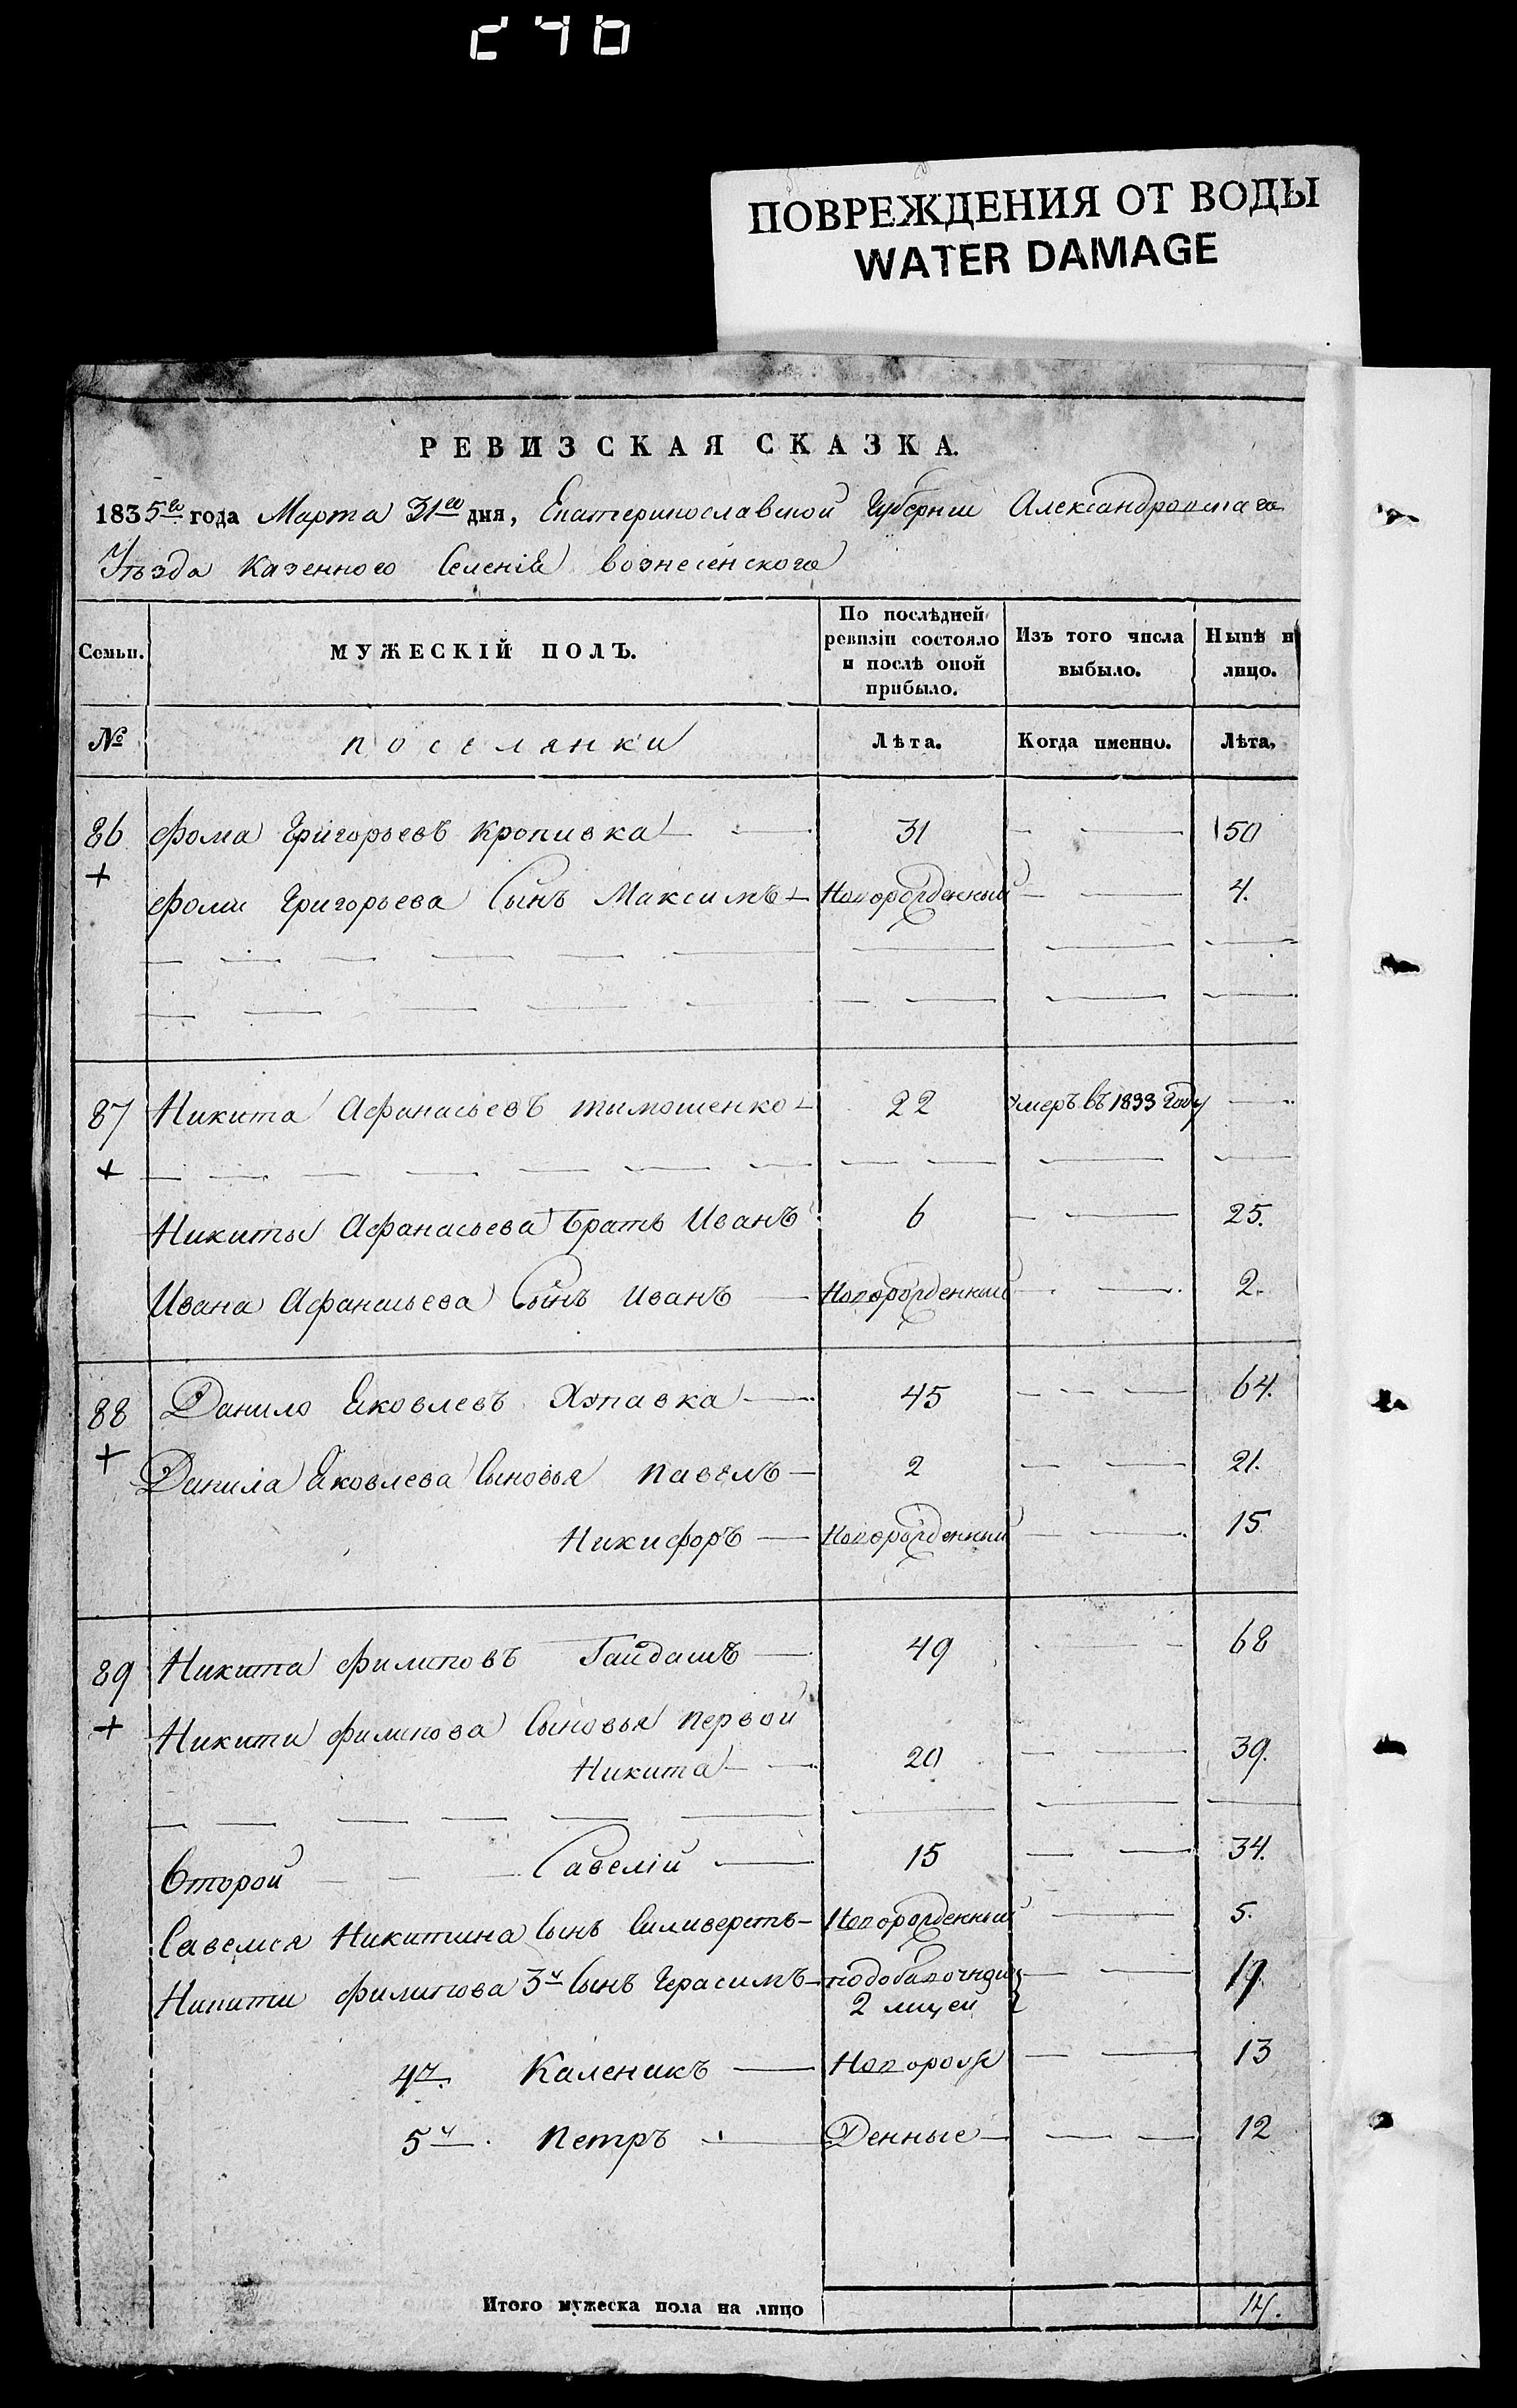 ПОВРЕЖДЕНИЯ ОТ ВОДЫ
WATER DAMAGE
РЕВИЗСКАЯ СКАЗКА.
1835го года Марта 31го дня, Екатеринославской Губерніи Александровскаго
Уѣзда Казенного Селенія вознесенского
Семьи. МУЖЕСКІЙ ПОЛЪ. По послѣдней ревизіи состояло и послѣ оной прибыло. Изъ того числа выбыло. Нынѣ н лицо.
№ поселянки Лѣта. Когда именно. Лѣта,
86 Фома Григорьевъ Кропивка 31 50
+ Фоми Григорьева Сынъ Максимъ Новорожденный 4.
87 Никита Афанасьевъ тимошенко 22 Умеръ въ 1833 Году
+
Никиты Афанасьева братъ Иванъ 6 25.
Ивана Афанасьева Сынъ Иванъ Новорожденный 2.
88 Данило Яковлевъ 45 64.
+ Данила Яковлева Сыновья павелъ 2 21.
Никифоръ Новорожденный 15
89 Никита филиповъ Гайдашъ 49 68
+ Никити филипова Сыновья первой
Никита 20 39.
Второй Савелій 15 34.
Савелія Никитина Сынъ Силиверстъ Новорожденный 5.
Никити филипова 3й Сынъ Герасимъ 19.
2
4й. Каленикъ Новорож 13
5й. петръ Денные 12
Итого мужеска пола на лицо 14.